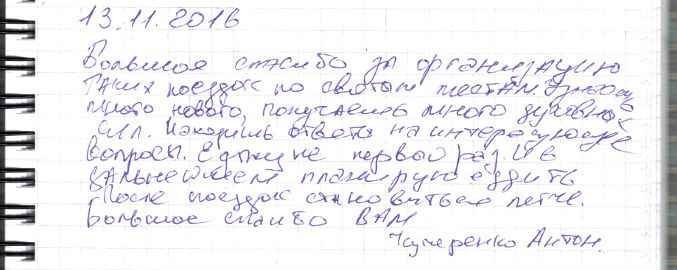 13.11.2016
Большое спасибо за организацию
таких поездок по святым местам. Узнаешь
много нового, получаешь много духовных
сил. Находишь ответы на интересующие
вопросы. Езжу не первый раз. И в
дальнейшем планирую ездить
После поездок становиться легче.
Большое спасибо ВАМ
Кучеренко Антон.